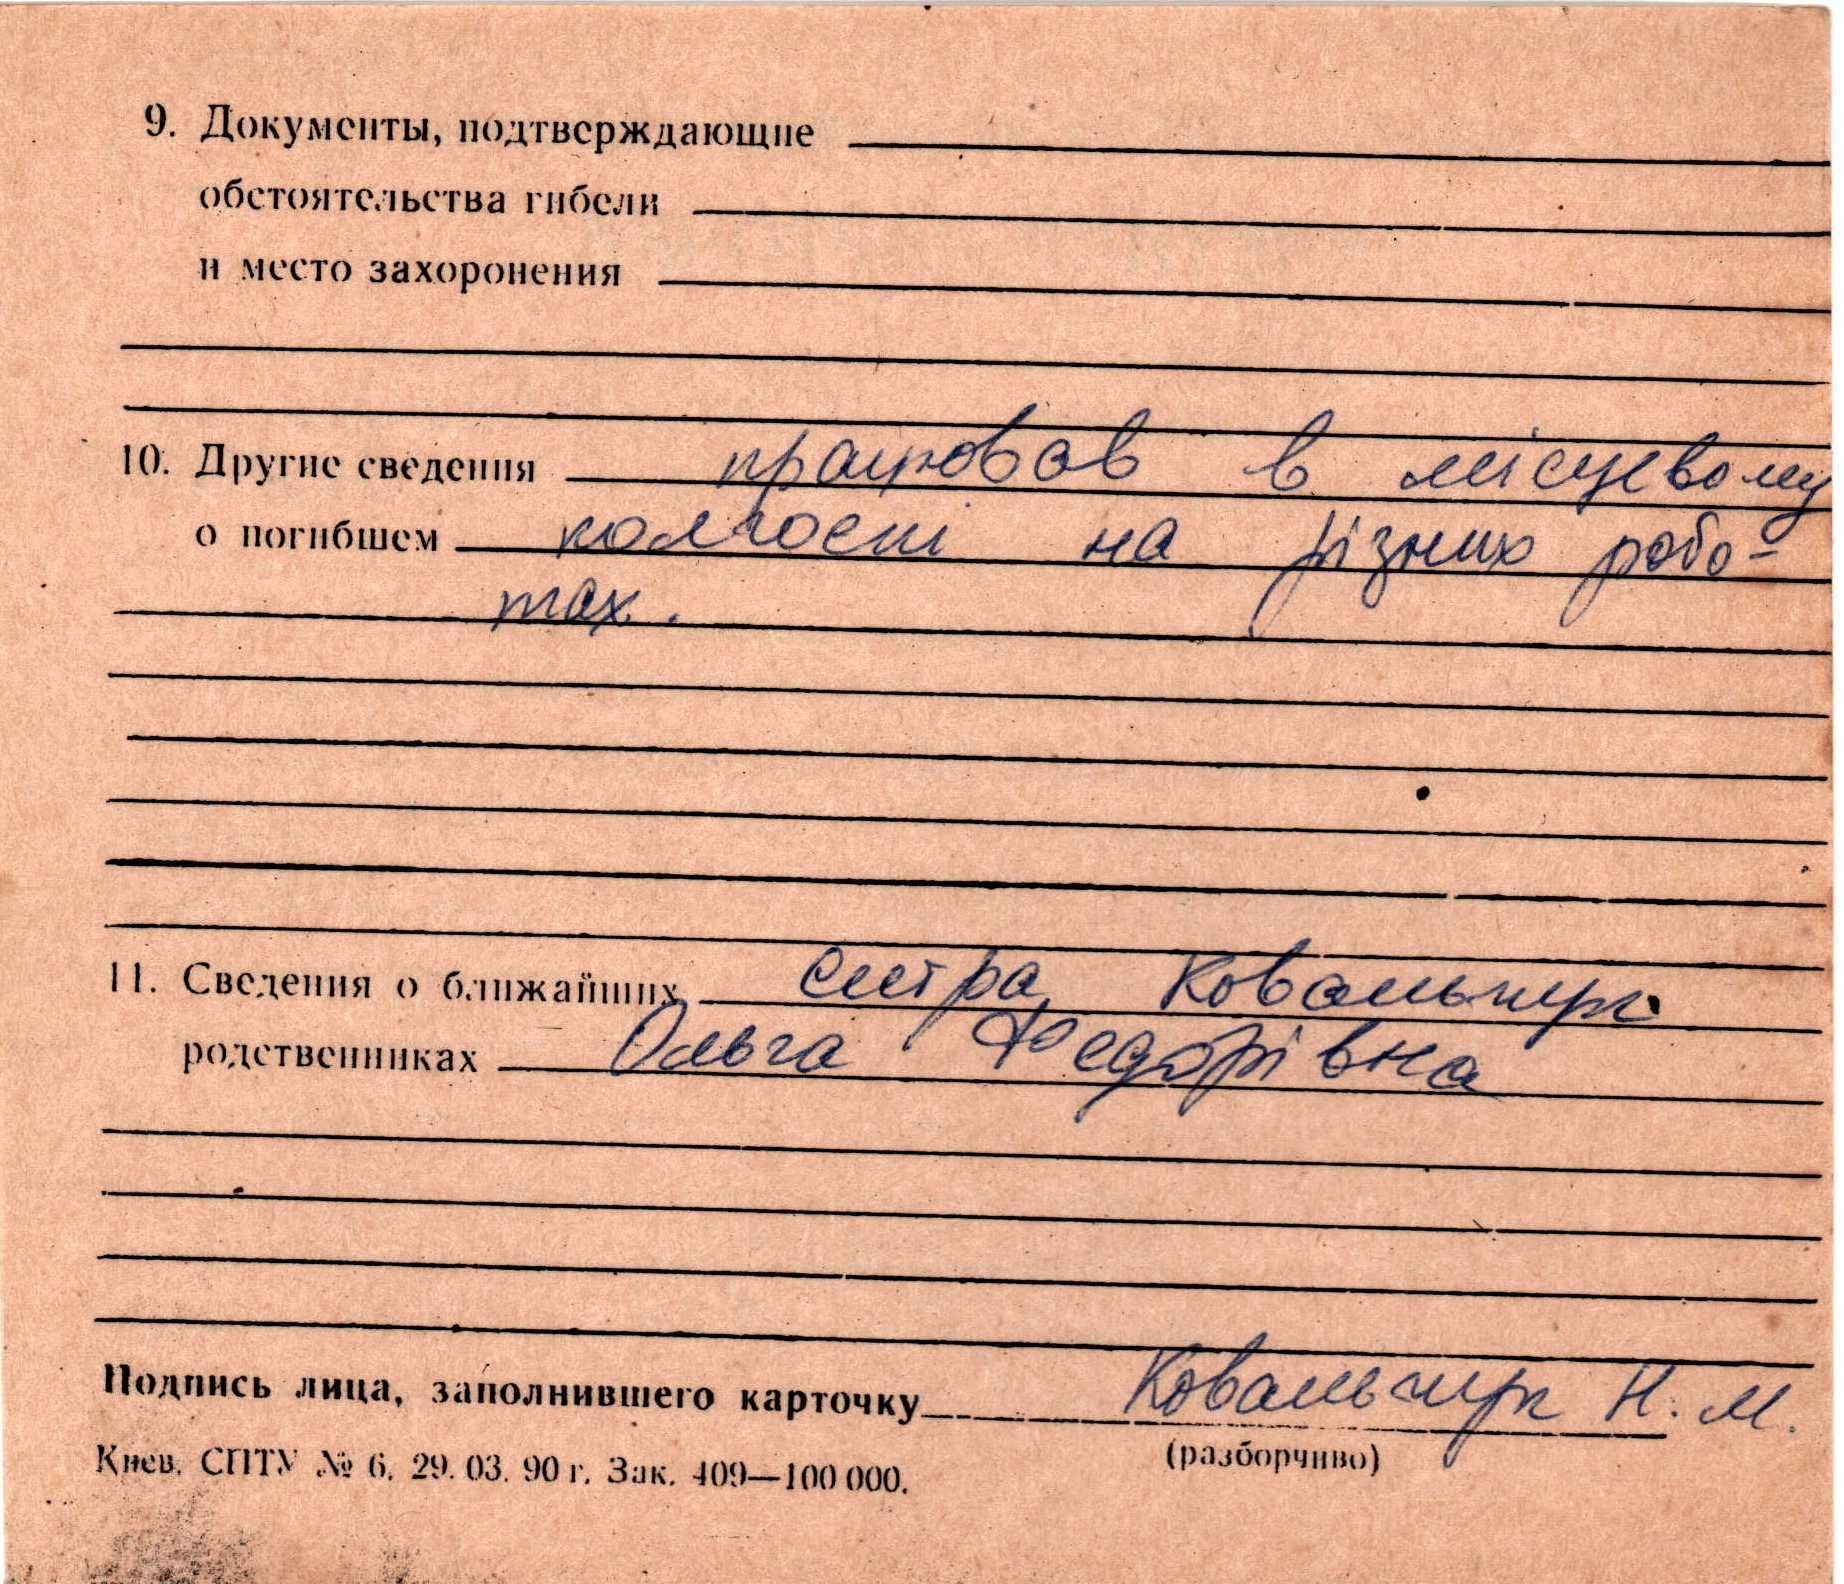 9. Документы, подтверждающие
обстоятельства гибели
и место захоронения
10. Другие сведения працював в місцевому
о погибшем колгоспі на різних робо-
тах.
11. Сведения о ближайших сестра Ковальчук
родственниках Ольга Федорівна
Подпись лица, заполнившего карточку Ковальчук Н. М.
(разборчиво)
Киев. СПТУ № 6. 29. 03. 90 г. Зак. 409—100 000.